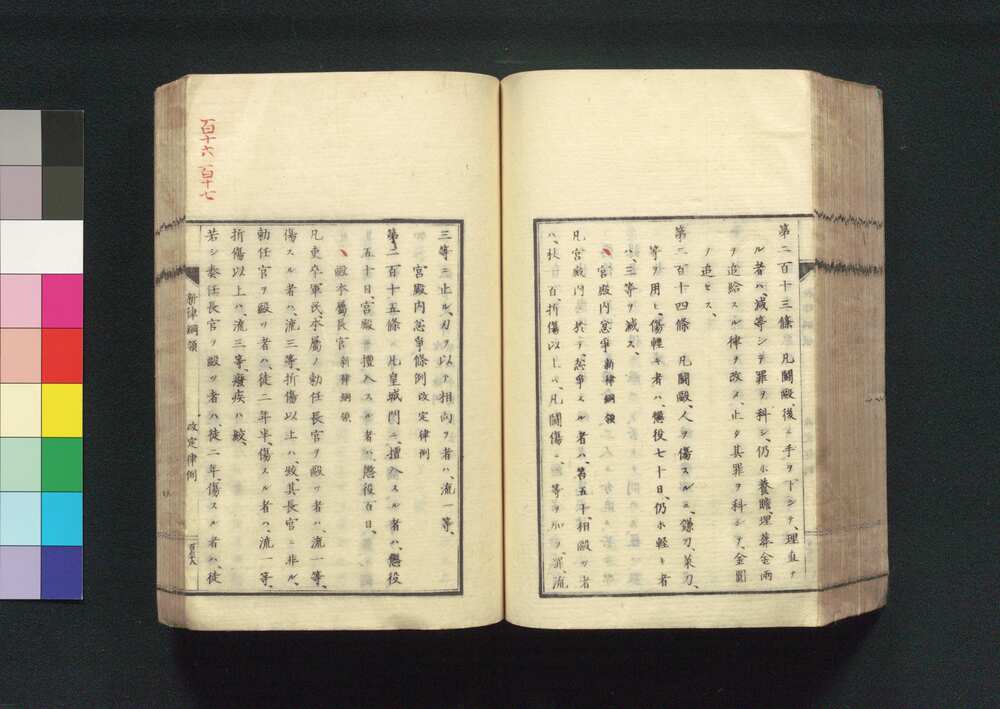 第二百十三條 凡闘毆、後レ手ヲ下シテ、理直ナ
ル者ハ、減等シテ罪ヲ科シ、仍ホ養贍埋葬金兩
ヲ追給スル律ヲ改メ、止タ其罪ヲ科シテ、金圓
ノ追セス、
第二百十四條 凡闘毆、人ヲ傷スルニ、鎌刀、菜刀、
等ヲ用ヒ、傷輕キ者ハ、懲役七十日、仍ホ輕キ者
ハ、三等ヲ減ス、
宮殿内忿爭 新律綱領
凡宮殿内ニ於テ、忿爭スル者ハ、笞五十、相毆ツ者
ハ、杖一百、折傷以上ハ、凡闘傷ニ二等ヲ加フ、罪、流
三等ニ止ル、刀ヲ以テ相向フ者ハ、流一等、
宮殿内忿爭條例 改定律例
第二百十五條 凡皇城門ニ、擅入スル者ハ、懲役
五十日、宮殿ニ擅入スル者ハ、懲役百日、
毆本屬長官 新律綱領
凡吏卒軍民、本屬ノ勅任長官ヲ毆ツ者ハ、流一等、
傷スル者ハ、流三等、折傷以上ハ、絞、其長官ニ非ル、
勅任官ヲ毆ツ者ハ、徒二年半、傷スル者ハ、流一等、
折傷以上ハ、流三等、癈疾ハ、絞、
若シ奏任長官ヲ毆ツ者ハ、徒二年、傷スル者ハ、徒
新律綱領 改定律例
百十六 百十七